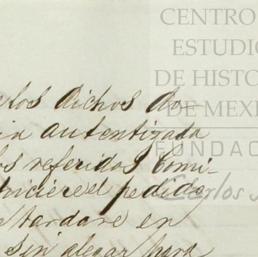 CENTRO
ESTUDIO
DE HISTO
DE MEXI
FUNDAC
Carlos
los dichos do-
in autentizada
os referidos comi-
hiciere el pedido
tardare en
sin alegar para